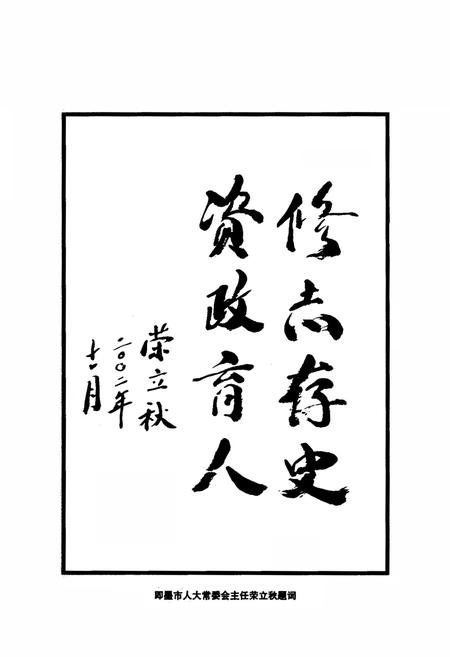 修志存史
资政育人
荣立秋
二〇〇二年
十一月
即墨市人大常委会主任荣立秋题词